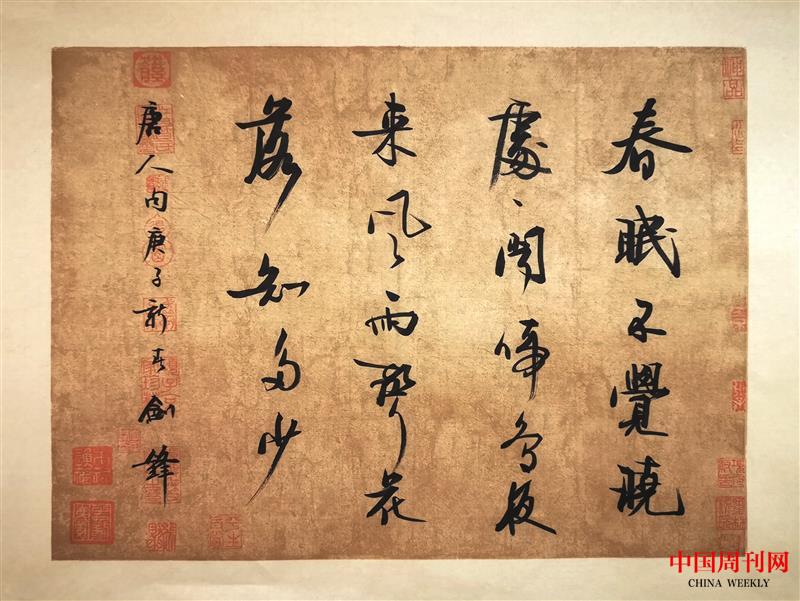 春眠不覺曉
處〻聞啼鳥夜
来風雨聲花
落知多少
唐人句庚子新春劍鋒
中国周刊网
CHINA WEEKLY